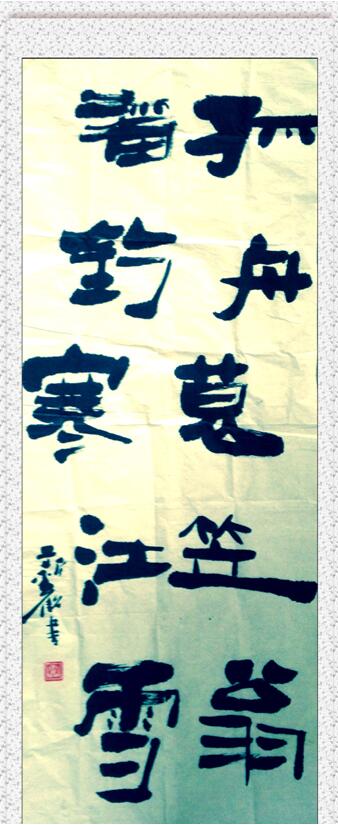 孤舟蓑笠翁
獨釣寒江雪